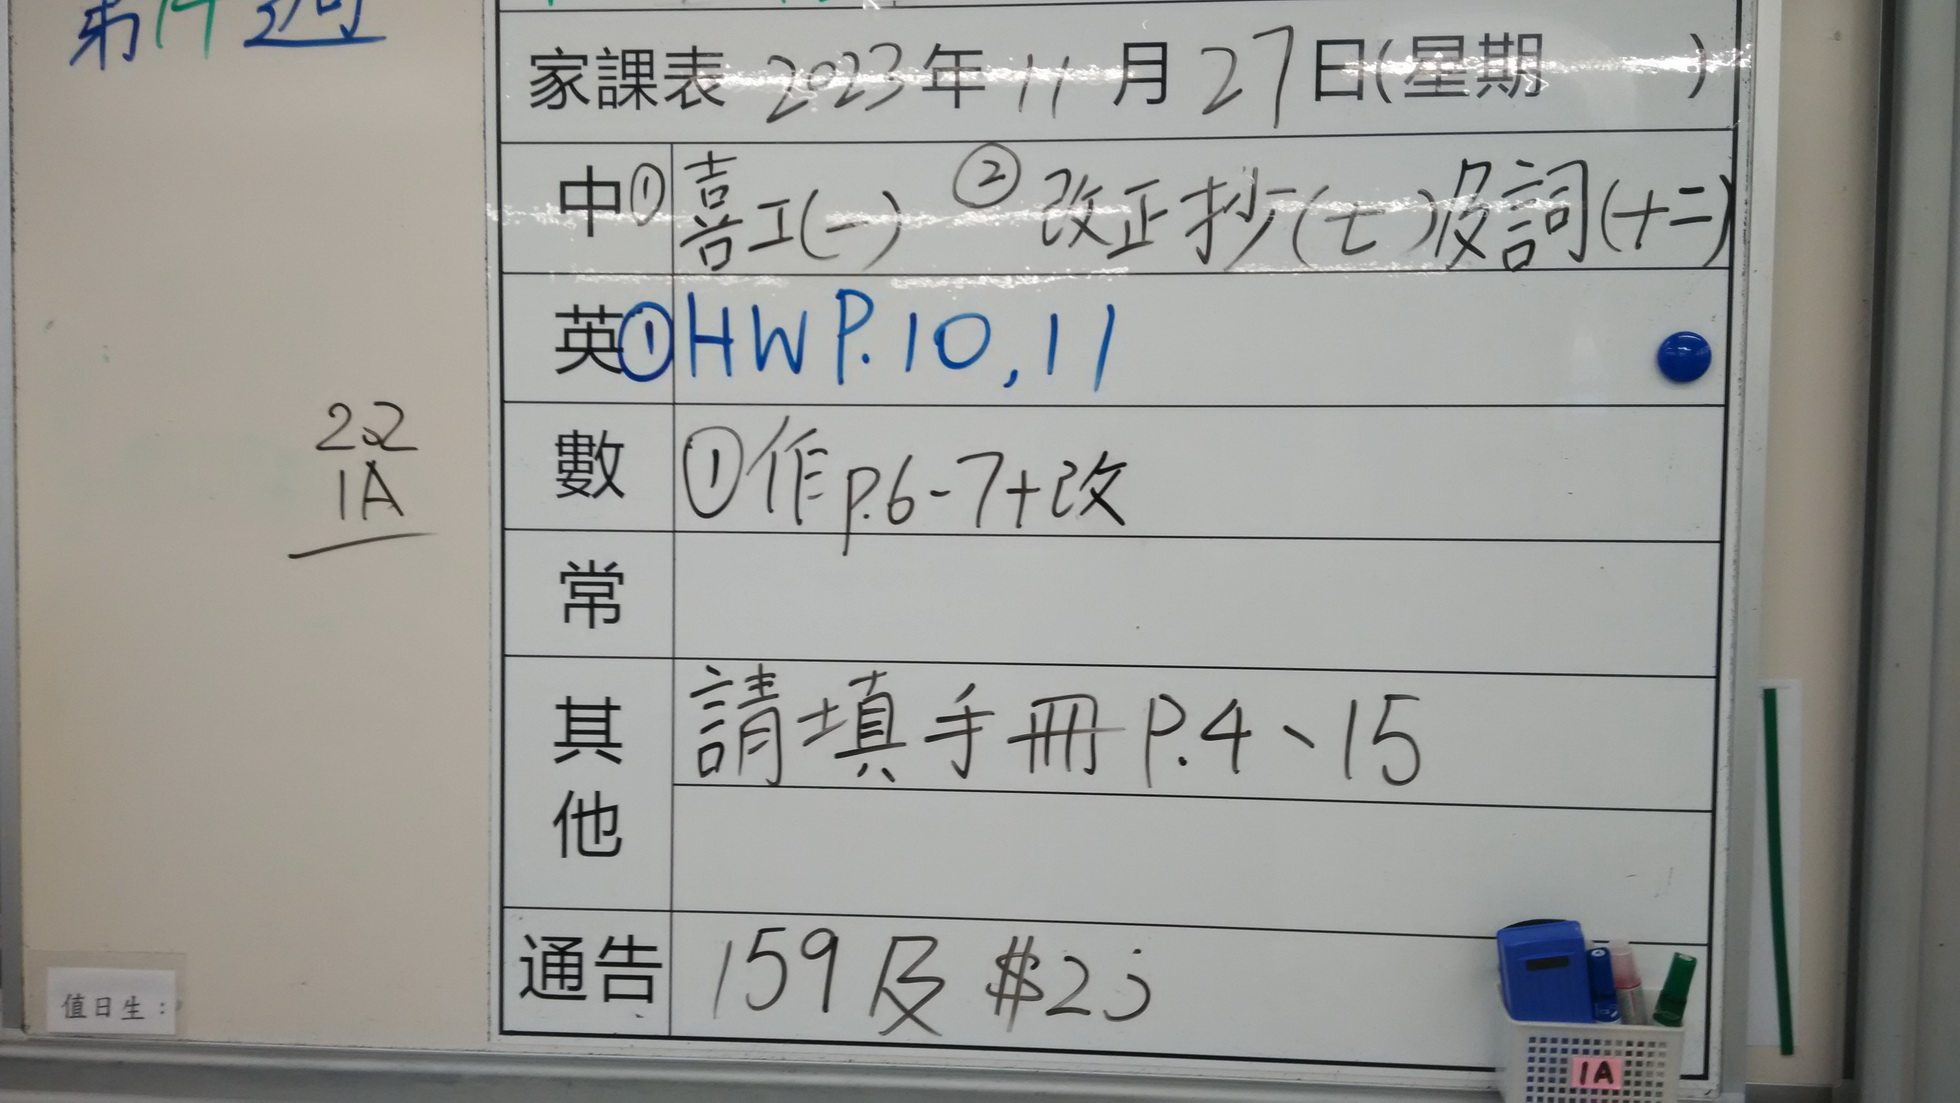 第14週
家課表 2023年11月27日(星期 )
中① 喜工(一) ② 改正抄(七)及詞(十二)
英① HW P.10,11
數 ①作p.6-7+改
常
其他 請填手冊 P.4、15
通告 159及
22
1A
值日生：
1A